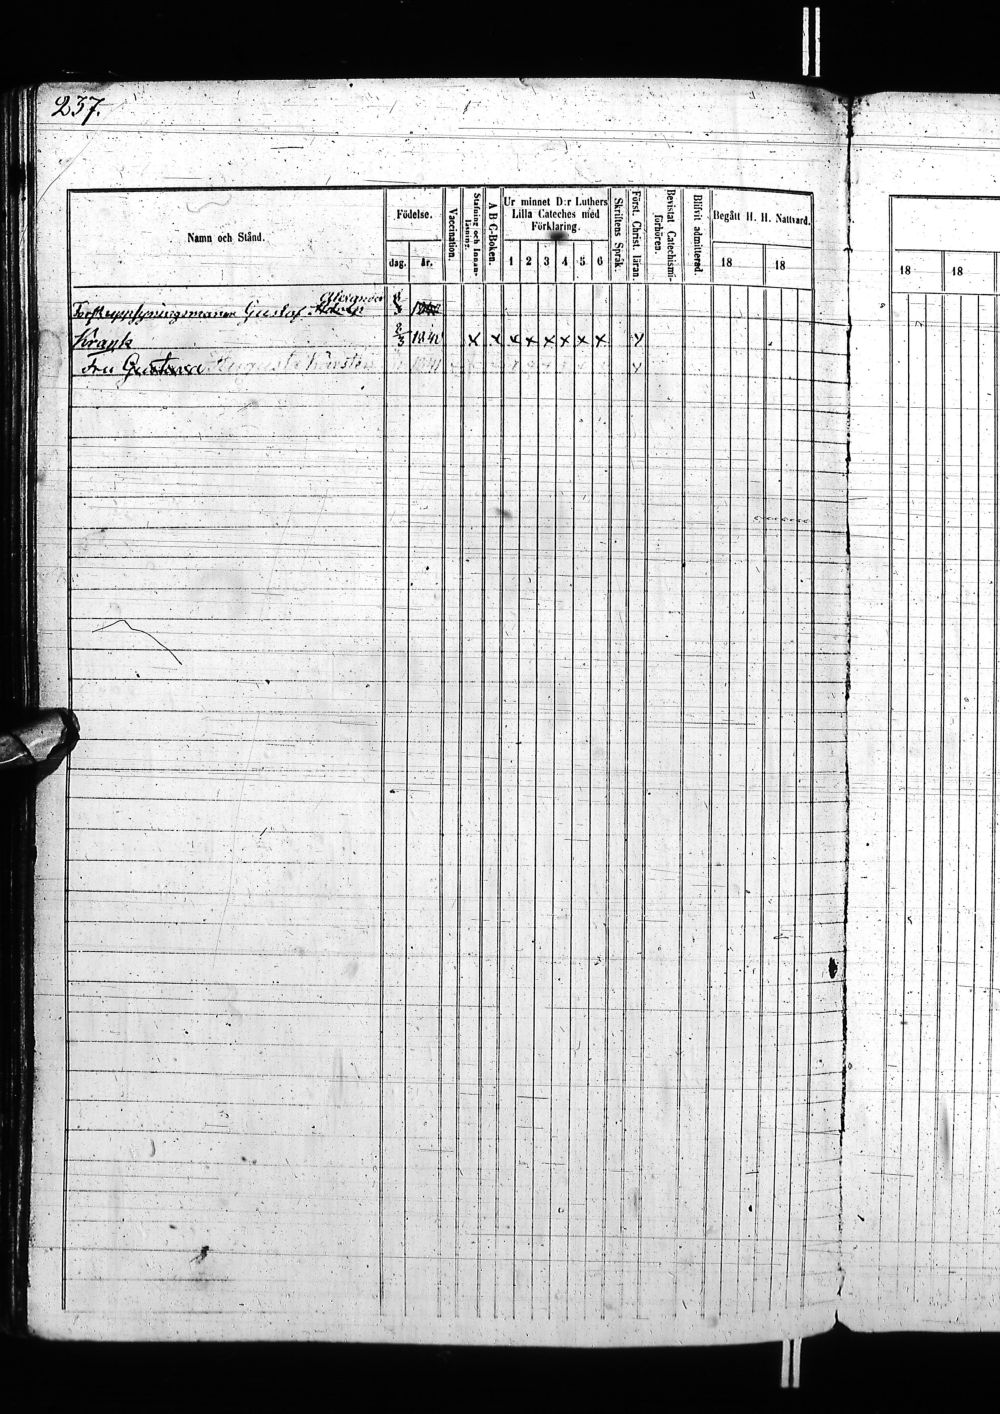 237.
Namn och Stånd.
Födelse.
dag.
år.
Vaccination.
Stafning och Innan-
läsning.
A B C-Boken.
Ur minnet D:r Luthers
Lilla Cateches med
Förklaring.
1 2 3 4 5 6
Skriftens Språk.
Först. Christ. läran.
Bevistat Catechismi-
förhören.
Blifvit admitterad.
Begått H. H. Nattvard.
18 18
18 18
Alexander
Gustaf
Krank 2/3 1840 x x x x x x x x
Fru Gustava Augusta